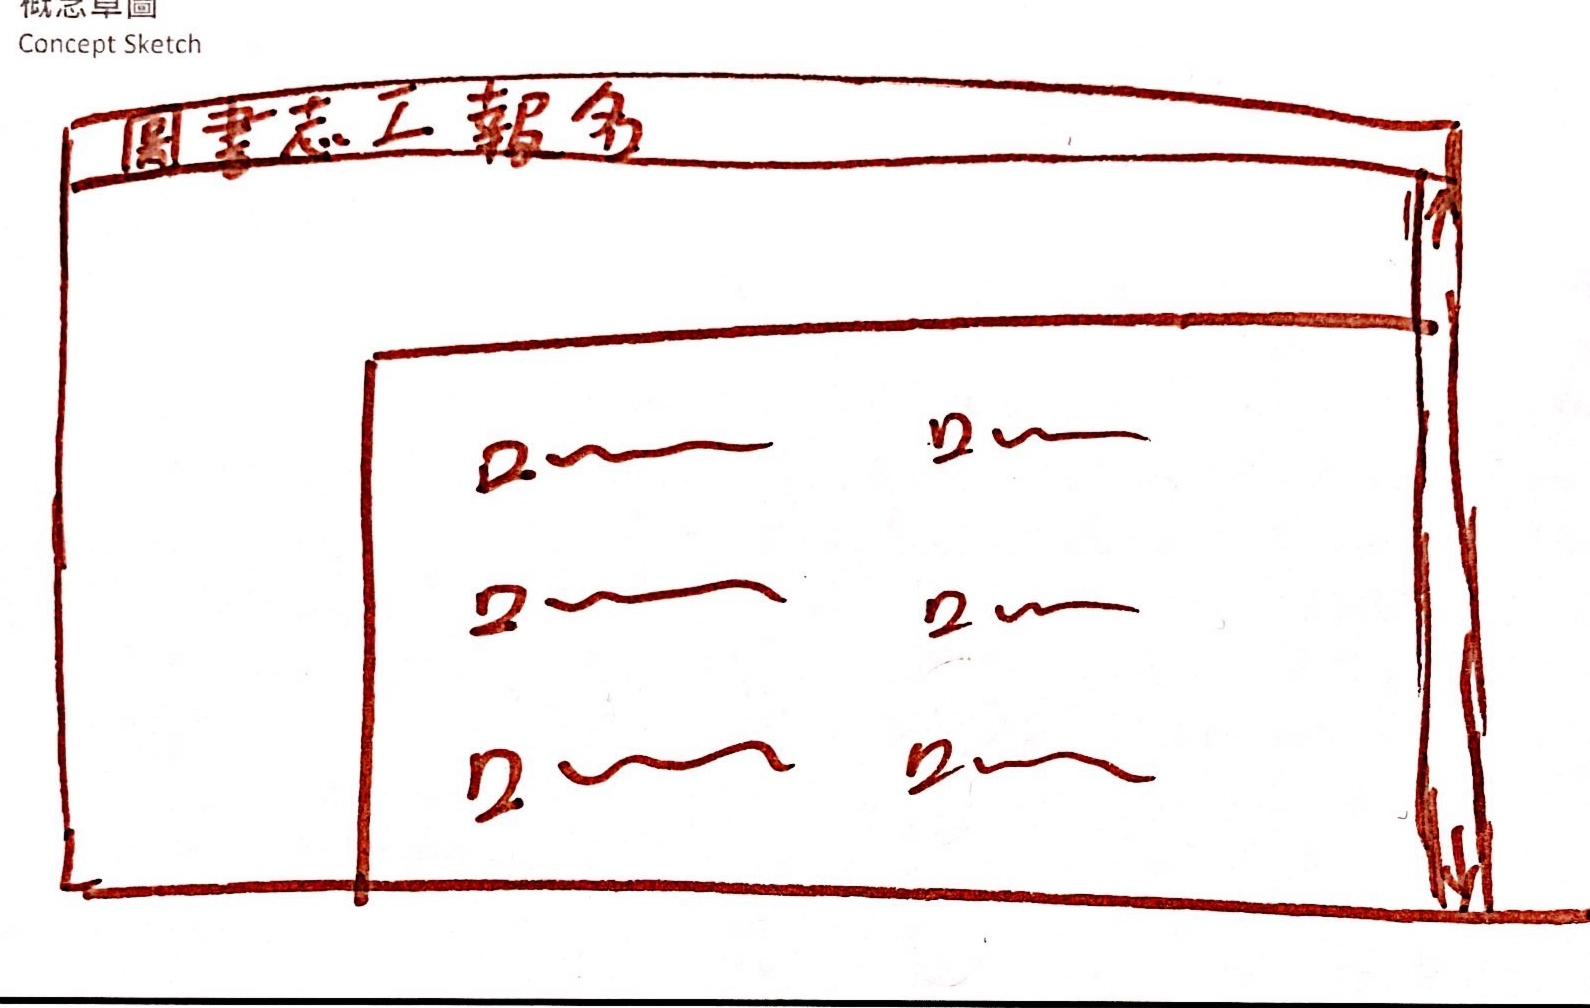 概念草圖
Concept Sketch
圖書志工報名